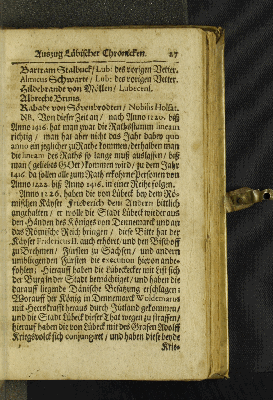 Auszug Lübischer Chronicken. 27
Bartram Stalbuck/ Lub: des vorigen Vetter.
Almicus Schwarte/ Lub: des vorigen Vetter.
Hildebrande von Möllen/ Lubecens.
Albrecht Bruns.
Rabade von Sövenbrodten/ Nobilis Holsat.
NB. Von dieser Zeit an/ nach Anno 1220. biß
Anno 1416. hat man zwar die Rathsstamm lineam
richtig/ man hat aber nicht das Jahr dabey quo
anno ein jeglicher zu Rathe kommen/ derhalben man
die lineam des Raths so lange muß auslassen/ biß
man/ geliebts GOtt/ kommen wird/ zu dem Jahr
1416. da sollen alle zum Rath erkohrne Personen von
Anno 1222. biß Anno 1416. in einer Reihe folgen.
Anno 1226. haben die von Lübeck bey dem Rö-
mischen Käyser Friederich dem Andern bittlich
angehalten/ er wolle die Stadt Lübeck wieder aus
den Händen des Königs von Dennemarck und an
das Römische Reich bringen/ diese Bitte hat der
Käyser Fridericus II. auch erhöret/ und den Bischoff
zu Brehmen/ Fürsten zu Sachsen/ und andern
umbliegenden Fürsten die execution hievon anbe-
fohlen; Hierauff haben die Lübeckecker mit List sich
der Burg in der Stadt bemächtiget/ und haben die
darauff liegende Dänische Besatzung erschlagen;
Worauff der König in Dennemarck Woldemarus
mit Heerskrafft heraus durch Jütland gekommen/
und die Stadt Lübeck dieser That wegen zu straffen/
hierauf haben die von Lübeck mit des Grafen Adolff
Kriegsvolck sich conjungiret/ und haben diese beyde
Krie-